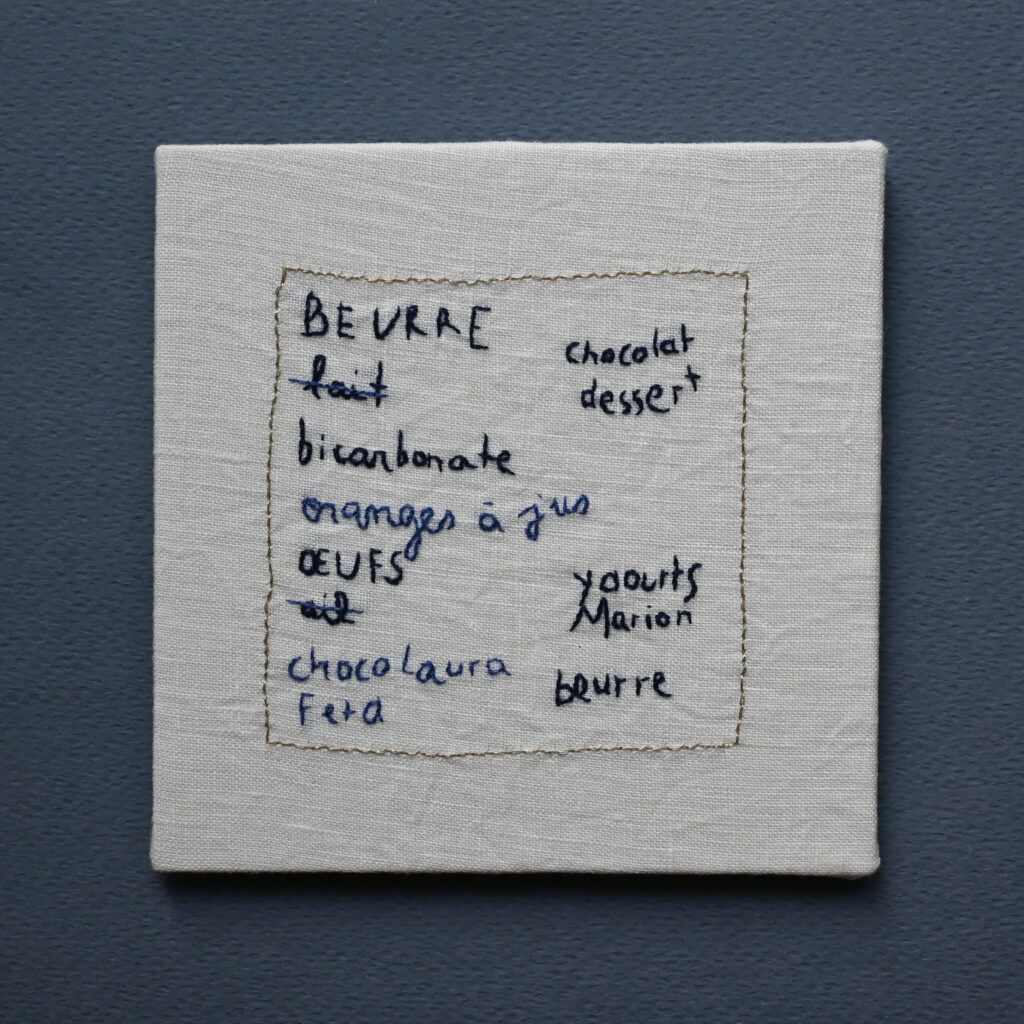 BEURRE
lait
bicarbonate
oranges à jus
ŒUFS
ail
choco Laura
Feta
chocolat
dessert
yaourts
Marion
beurre